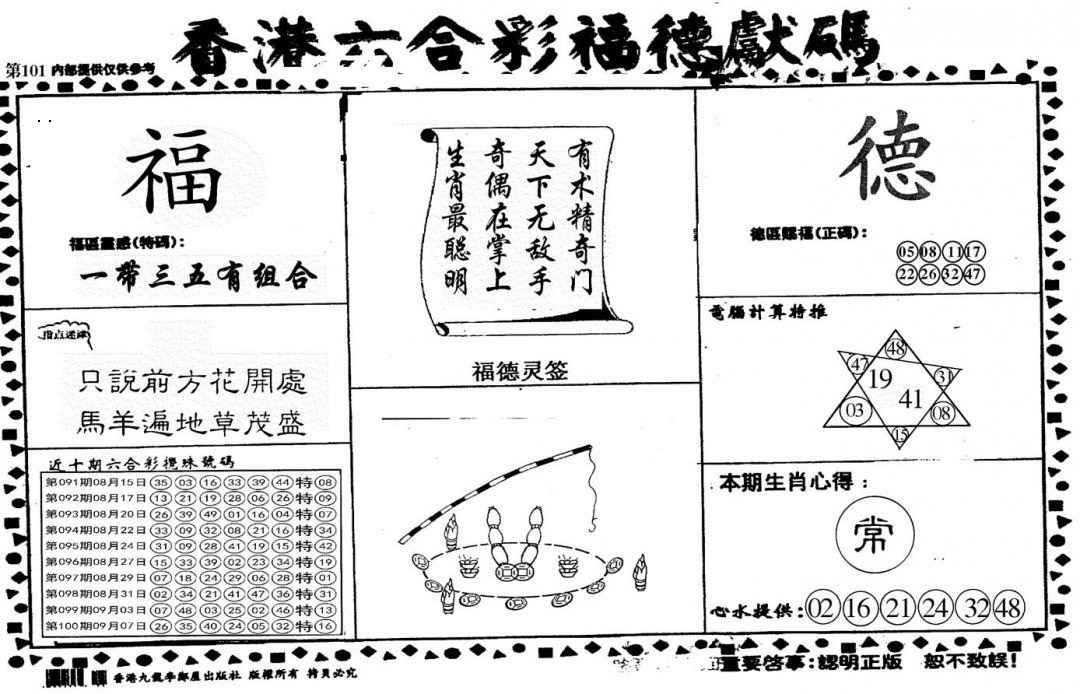 香港六合彩福德獻碼
第101 内部提供仅供参考
福
福區靈感(特碼):
一帶三五有组合
指点迷津
只説前方花開處
馬羊遍地草茂盛
近十期六合彩攪珠號碼
第091期08月15日 35 03 16 33 39 44 特 08
第092期08月17日 13 21 19 28 06 26 特 09
第093期08月20日 26 39 49 01 16 04 特 07
第094期08月22日 33 09 32 08 21 16 特 34
第095期08月24日 31 09 28 41 19 15 特 42
第096期08月27日 15 33 39 02 23 34 特 19
第097期08月29日 07 18 24 29 06 28 特 01
第098期08月31日 02 34 21 41 47 36 特 31
第099期09月03日 07 48 03 25 02 46 特 13
第100期09月07日 26 35 40 24 05 32 特 16
有术精奇门
天下无敌手
奇偶在掌上
生肖最聪明
福德灵签
德
德區賜福(正碼):
05 08 11 17
22 26 32 47
電腦計算特推
48
47 19 31
41
03 08
15
本期生肖心得:
常
心水提供:02 16 21 24 32 48
香港九龍李鄭屋出版社 版權所有 拷貝必究
重要啓事:認明正版 恕不致誤!